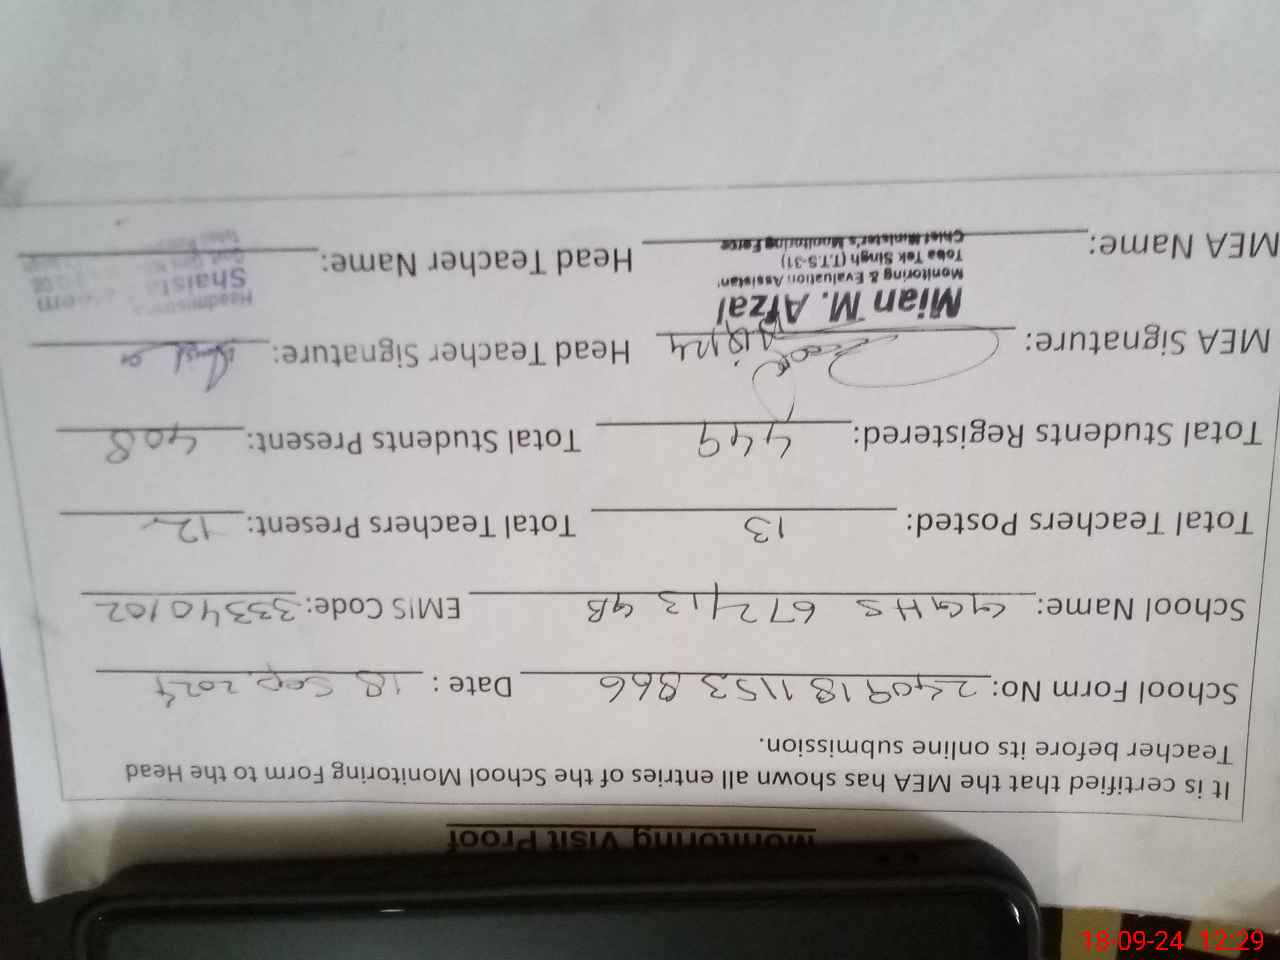 Monitoring Visit Proof
It is certified that the MEA has shown all entries of the School Monitoring Form to the Head
Teacher before its online submission.
School Form No: 240918 1153 866 Date : 18 Sep, 2024
School Name: GGHS 672/13 GB EMIS Code: 33340102
Total Teachers Posted: 13 Total Teachers Present: 12
Total Students Registered: 449 Total Students Present: 408
MEA Signature: Head Teacher Signature:
Mian M. Afzal
Monitoring & Evaluation Assistant
Toba Tek Singh (T.T.S-31)
Chief Minister's Monitoring Force
Headmistress
Shaista
MEA Name: Head Teacher Name:
18-09-24 12:29